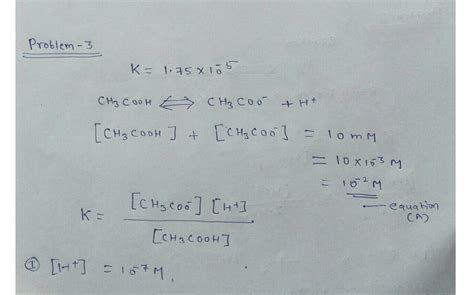 Problem-3
K = 1.75 × 10⁻⁵
CH₃COOH ⇌ CH₃COO⁻ + H⁺
[CH₃COOH] + [CH₃COO⁻] = 10 mM
= 10 × 10⁻³ M
= 10⁻² M
equation (A)
K = [CH₃COO⁻] [H⁺]
[CH₃COOH]
① [H⁺] = 10⁻⁷ M,